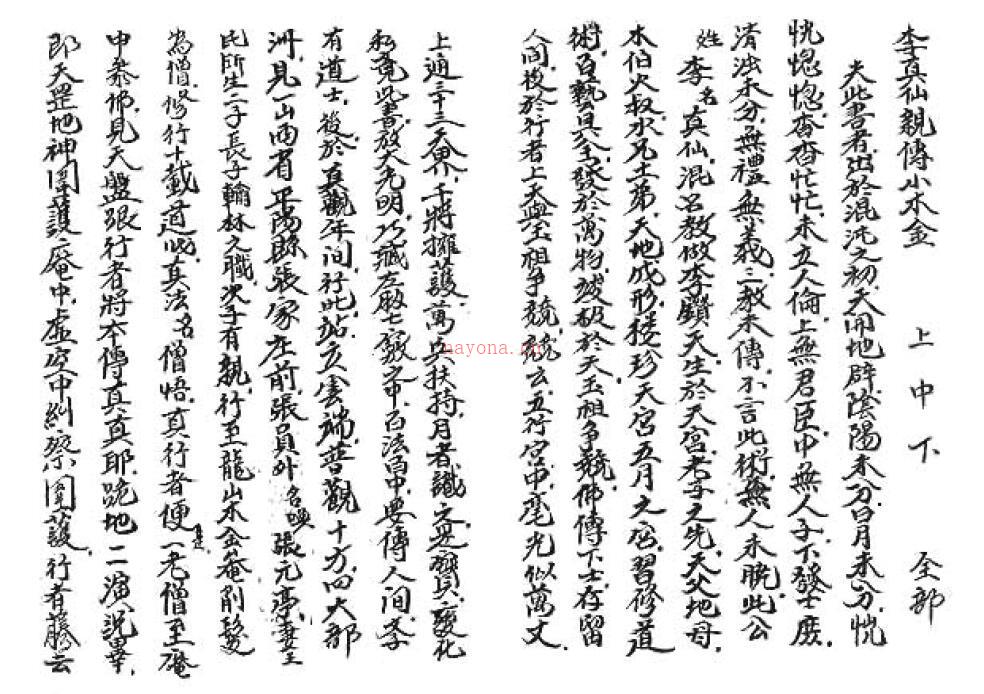 李真仙親傳小木金 上中下 全部
夫此書者出於混沌之初天開地辟陰陽未分日月未分恍
恍惚惚杳杳忙忙未立人倫上無君臣中無人子下發士庶
清濁未分無禮無義三教未傳不言此術無人未脫此公
姓李名真仙混名教做李鑽天生於天宮老子之先天父地母
木伯火叔水兄土弟天地成形珍天宮五月之宮習修道
術百藝具全發於萬物破於天玉祖爭競佛傳下士存留
人間後於行者上天與玉祖爭競競云五行宮中毫光似萬丈
上通三十三天界千將擁護萬兵扶持月者識之是寶貝變化
私覓此書放大光明巧藏左殿七竅之中百法面中要傳人間
有道士後於真觀年间行此站立雲端普觀十方四大部
洲見一山西省平陽縣張家庄前張員外名喚張元亭妻王
氏所生二子長子翰林之職次子有親行至龍山木金菴前髮
為僧修行十載道成真法名僧悟真行者便一老僧至庵
中叅佛見天盤張行者將本傳真真耶跪地二演說畢
即天罡地神圍護庵中虛空中糾察圍護行者藤云
nayona.cn